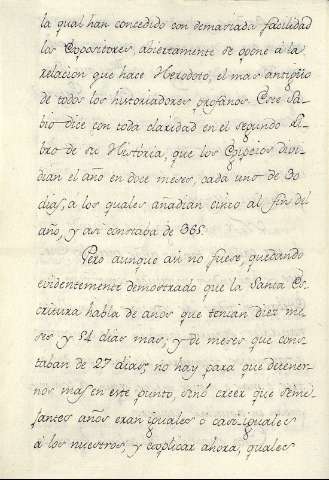 la qual han concedido con demasiada facilidad
los Expositores, abiertamente se opone á la
relacion que hace Herodoto, el mas antiguo
de todos los historiadores profanos. Este Sa-
bio dice con toda claridad en el segundo Li-
bro de su História, que los Egipcios divi-
dian el año en doce meses, cada uno de 30
dias, a los quales añadian cinco al fin del
año, y asi constaba de 365.
Pero aunque asi no fuese, quedando
evidentemente demostrado que la Santa Es-
critura habla de años que tenian diez me-
ses y 54 dias mas; y de meses que cons-
taban de 27 dias, no hay para que detener-
nos mas en este punto, sinó creer que seme-
jantes años eran iguales o casi iguales
á los nuestros, y explicar ahora, quales